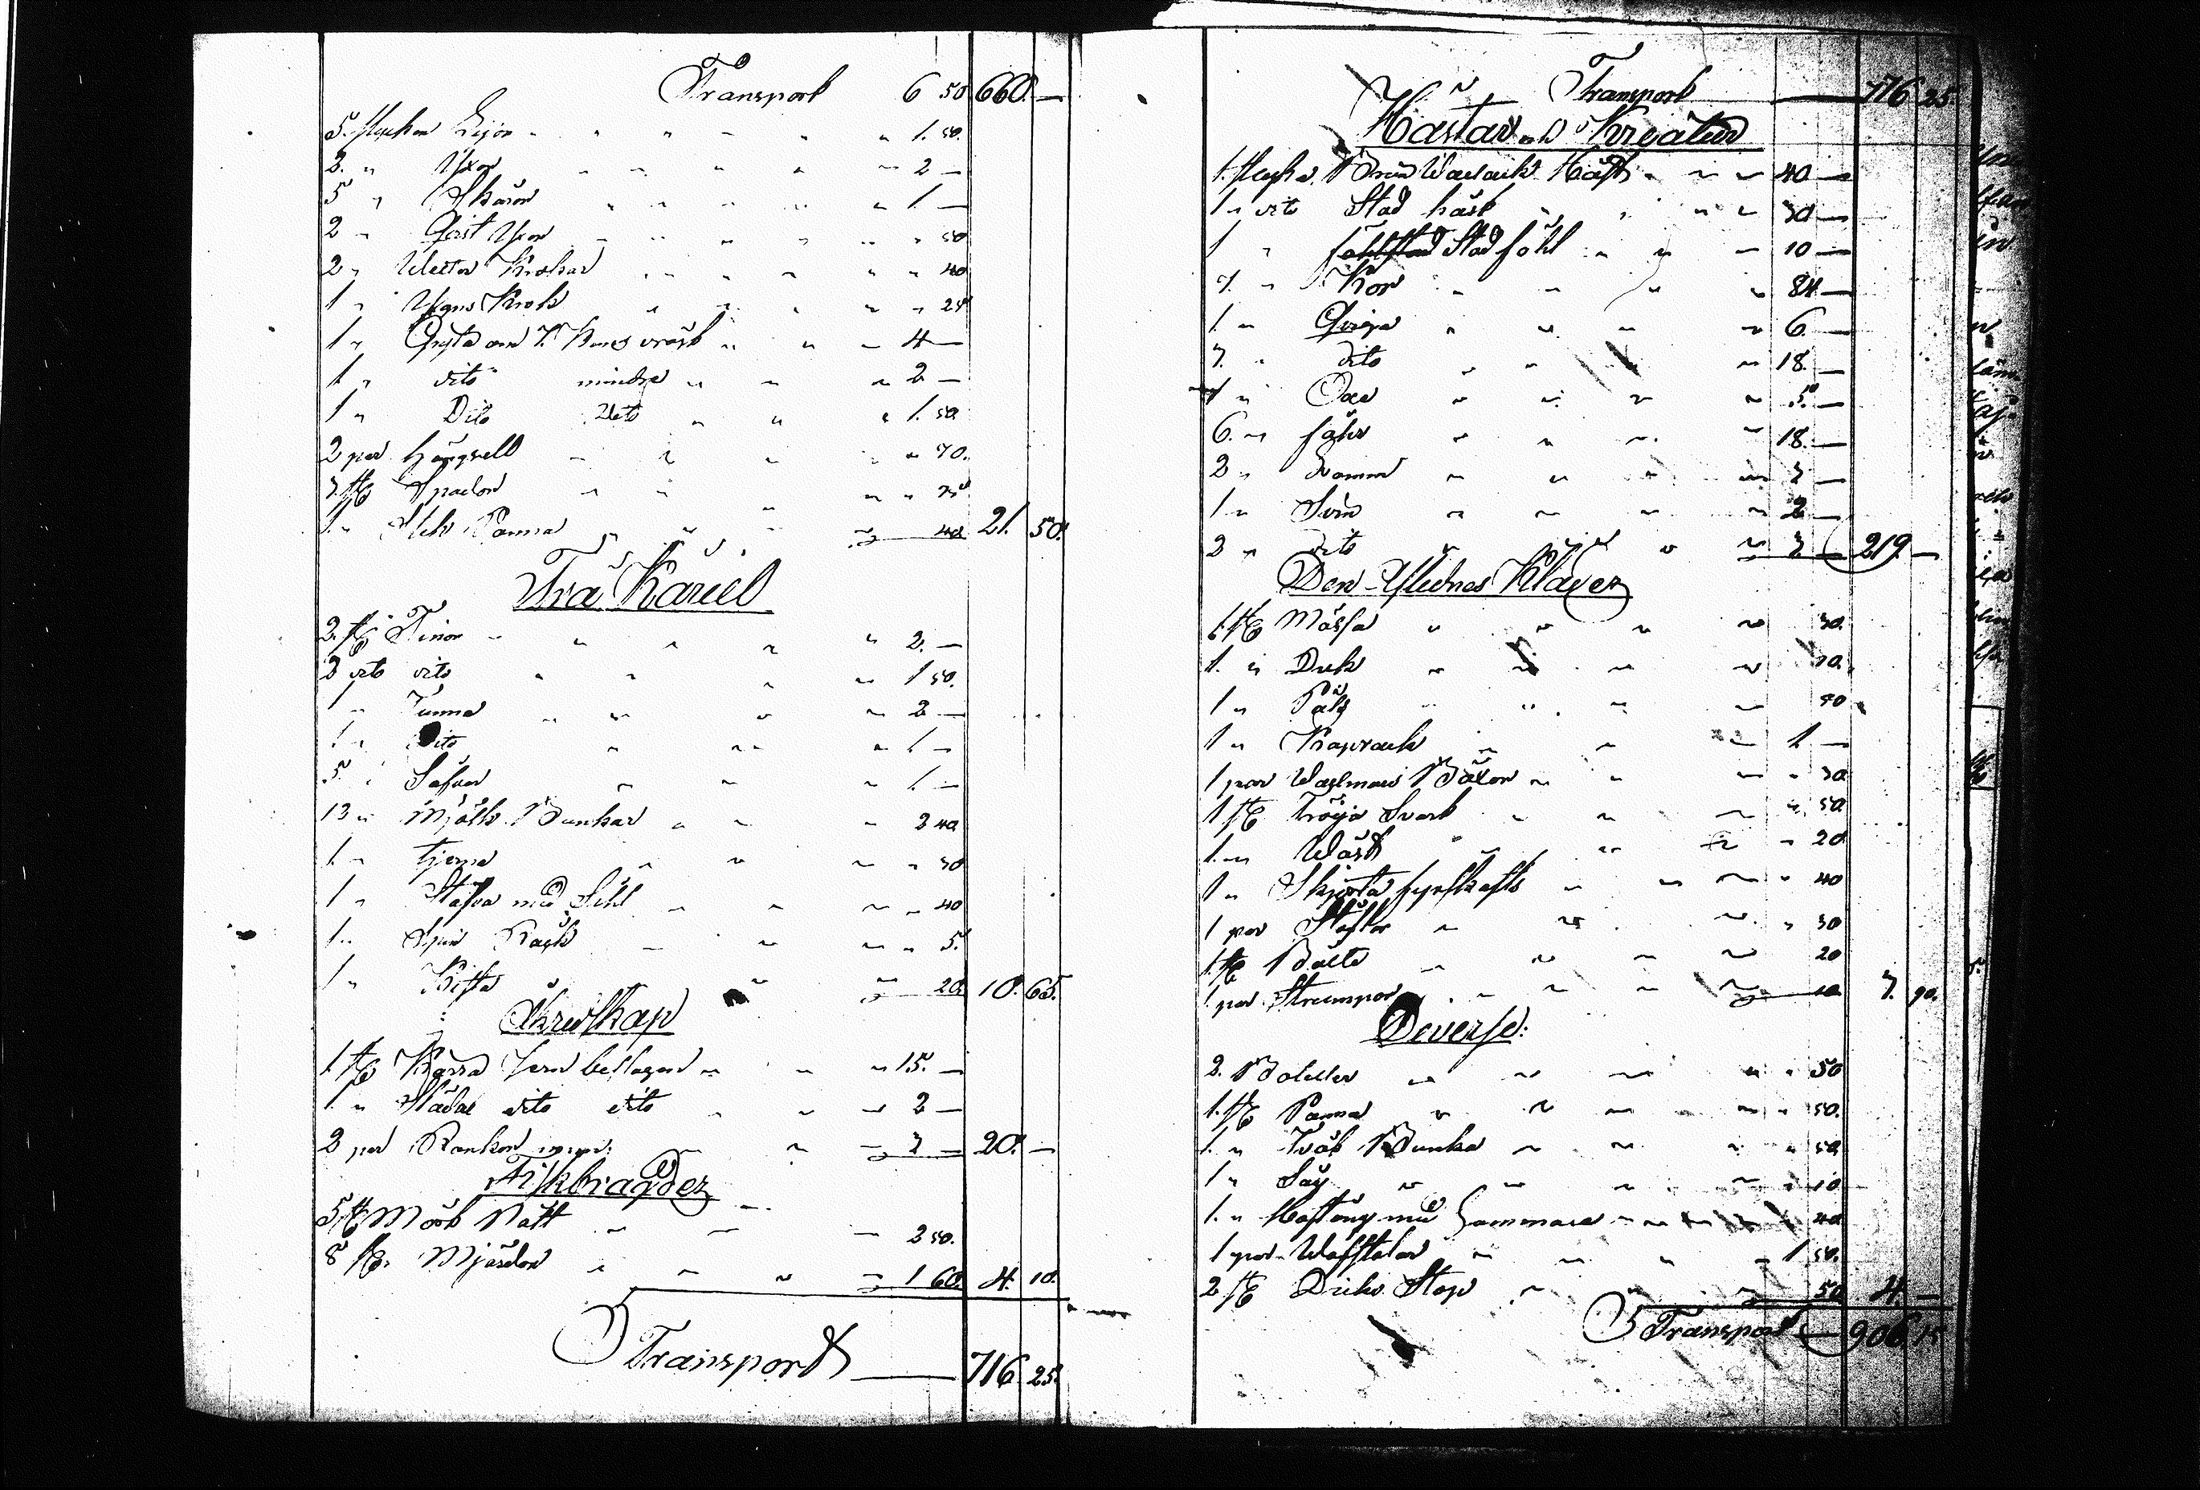 Transport 6 50 660. —
5. stycken Lijor " " 1. 50.
2. " Yxor " " 2 —
5 " Skäror " " 1. —
2 " Qvist Yxor " " 50
2 " Krokar " " 40
1 " Ugns Krok " " 25
1 " Gryta om " 4 —
1 " dito mindre " " 2 —
1 " Dito Dito " " 1. 50
2 par Hängsell " " 70.
3 st Spadar " "
1. " Stek Panna " 40 21. 50.
Trä Käriel
2. st Tinor " " 2. —
3 dito dito " " 1 50.
1 " Tunna " " 2 —
1 " Dito " " 1 —
5 " Såfvar " " 1. —
13 " Mjölk Bunkar " " 3 40
1. " Tjerna " " 30
1 " Stäfva med Sihl " " 40
1. " Spin Råck " " 5.
1 " Kista " " 20. 10. 65.
Åkredskap
1 st Kärra Jern beslagen " " 15. —
1. " Släde dito dito " " 2 —
2 par Rankor " 3 — 20. —
Fiskbragder
5 st Mört Nätt — 2 50.
8 st. Mjärdar " " 1 60. 4. 10.
Transport — 716. 25.
Transport — 716 25.
Hästar o Kreatur
1. stycke Brun Wallack Häst " " 40 —
1 " dito Stod häst " " 30 —
1 " Stod fohl " " 10 —
7. " Kor " " 84 —
1. " Qviga " " 6 —
3. " dito " " 18. —
1 " Oxe " " 5. —
6. " fåhr " " 18. —
2 " Lamm " " 3 —
1 " Svin " " 2 —
2 " dito " " 3 — 219. —
Den Aflednes Kläder
1. st Mössa " " 30.
1. " Duk " " 10.
1 " Päls " " 50
1 " Kaprock " " 1 —
1 par Wadmars Böxor " " 30
1 st Tröja Svart " " 50
1. " Wäst " " 20
1 " Skjorta fyrskafts " " 40
1 par Stöflor " " 30
1. st Bälte " " 20
1 par Strumpor " " 10 3. 90.
Diverse:
2. Boteller " " 50
1. st Panna " " 50.
1. " Tvät Bunka " " 50
1 " Såg " " 10
1. " Hoftång med Hammare " " 40
1 par Wåfstolar " " 1 50.
2 st Dricks Stop " " 50 4. —
Transport — 906 15